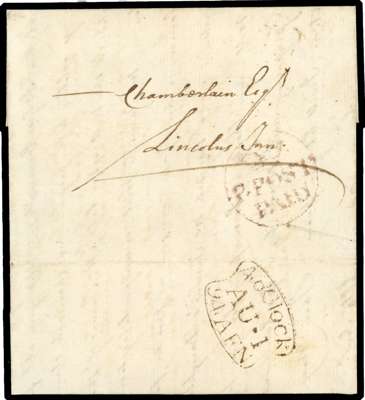 Chamberlain Esqr.
Lincolns Inn.
P. POST
PAID
4 o'Clock
AU·1
EVEN